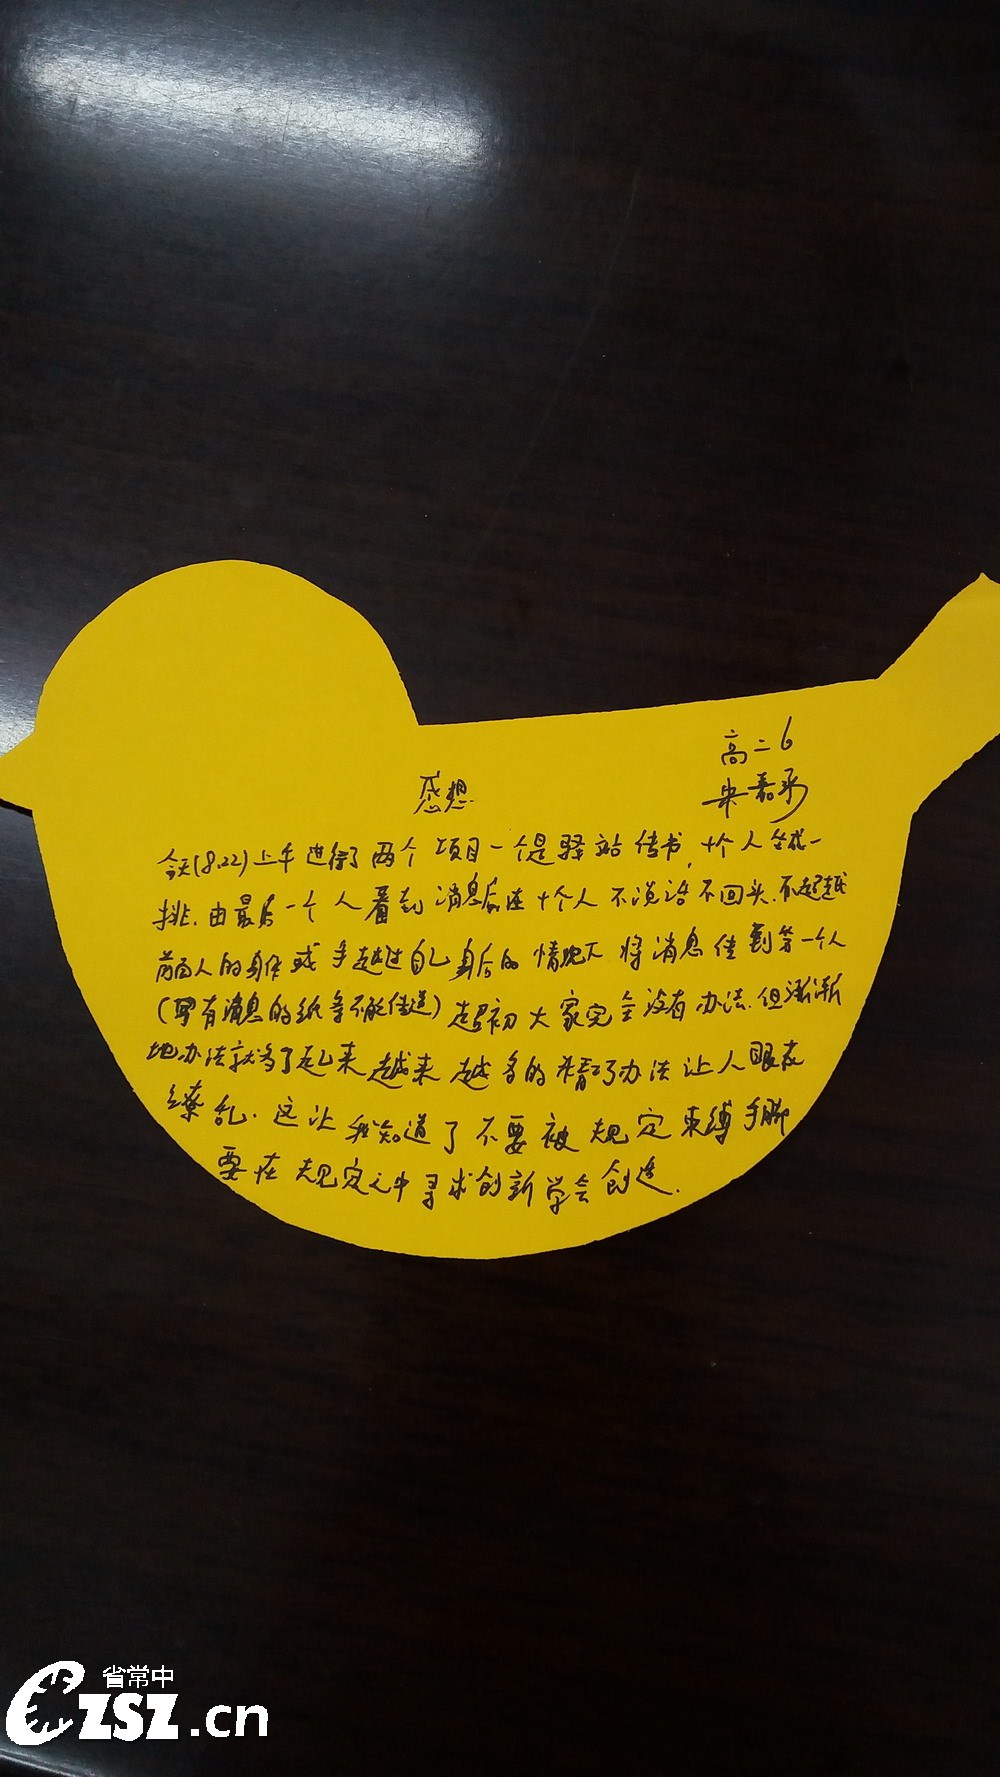 高二6
感想
今天(8.22)上午进行了两个项目一个是驿站传书,十个人坐成一
排.由最后一个人看到消息后在十个人不说话不回头.不超越
前面人的身体或手越过自己身后的情况下将消息传到第一个人
(写有消息的纸条不能传递)起初大家完全没有办法.但渐渐
地办法就多了起来越来越多的精巧办法让人眼花
缭乱.这让我知道了不要被规定束缚手脚
要在规定之中寻求创新学会创造.
省常中
CZSZ.cn